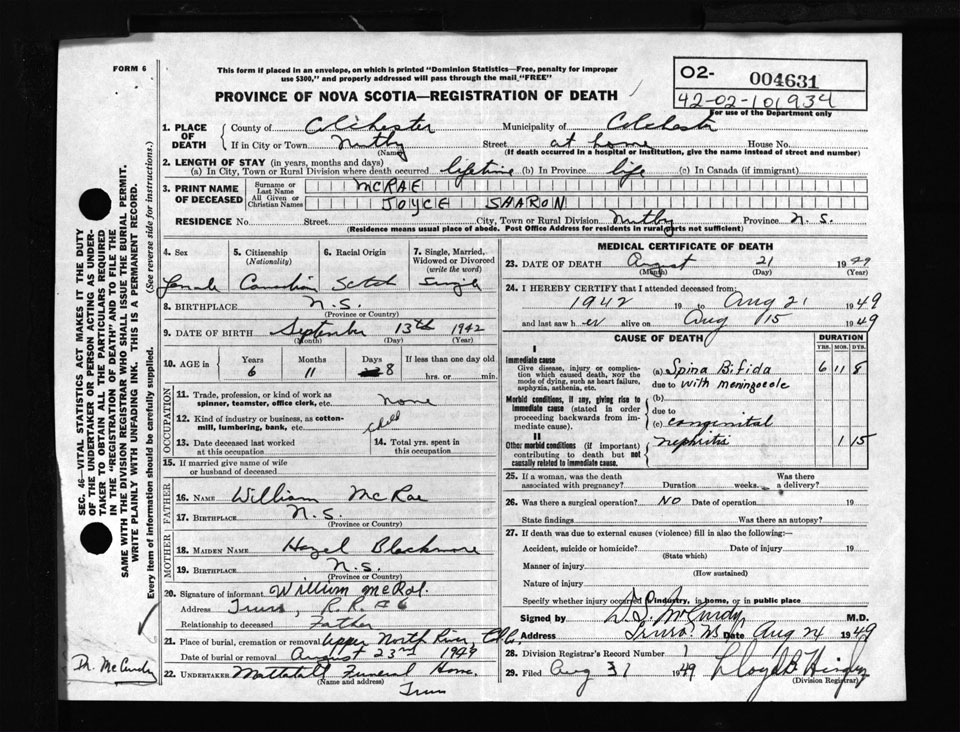 FORM 6
This form if placed in an envelope, on which is printed "Dominion Statistics—Free, penalty for improper
use $300," and properly addressed will pass through the mail "FREE"
PROVINCE OF NOVA SCOTIA—REGISTRATION OF DEATH
O2- 004631
42-02-101934
For use of the Department only
SEC. 46—VITAL STATISTICS ACT MAKES IT THE DUTY
OF THE UNDERTAKER OR PERSON ACTING AS UNDER-
TAKER TO OBTAIN ALL THE PARTICULARS REQUIRED
IN THE "REGISTRATION OF DEATH" AND TO FILE THE
SAME WITH THE DIVISION REGISTRAR WHO SHALL ISSUE THE BURIAL PERMIT.
WRITE PLAINLY WITH UNFADING INK. THIS IS A PERMANENT RECORD.
Every item of information should be carefully supplied. (See reverse side for instructions.)
Dr. McCurdy
1. PLACE OF DEATH { County of Colchester Municipality of Colchester
If in City or Town Nutby Street at home House No.
(Name) (If death occurred in a hospital or institution, give the name instead of street and number)
2. LENGTH OF STAY (in years, months and days)
(a) In City, Town or Rural Division where death occurred lifetime (b) In Province life (c) In Canada (if immigrant)
3. PRINT NAME OF DECEASED { Surname or Last Name MCRAE
All Given or Christian Names JOYCE SHARON
RESIDENCE No. Street City, Town or Rural Division Nutby Province N. S.
(Residence means usual place of abode. Post Office Address for residents in rural parts not sufficient)
4. Sex 5. Citizenship (Nationality) 6. Racial Origin 7. Single, Married, Widowed or Divorced (write the word)
Female Canadian Scotch Single
8. BIRTHPLACE N.S.
(Province or Country)
9. DATE OF BIRTH September 13th 1942
(Month) (Day) (Year)
10. AGE in { Years Months Days If less than one day old
6 11 8 hrs. or min.
OCCUPATION
11. Trade, profession, or kind of work as
spinner, teamster, office clerk, etc. none
12. Kind of industry or business, as cotten-
mill, lumbering, bank, etc. child
13. Date deceased last worked
at this occupation
14. Total yrs. spent in
this occupation
15. If married give name of wife
or husband of deceased
FATHER
16. NAME William McRae
17. BIRTHPLACE N.S.
(Province or Country)
MOTHER
18. MAIDEN NAME Hazel Blackmore
19. BIRTHPLACE N.S.
(Province or Country)
20. Signature of informant William McRae
Address Truro, R.R. # 6
Relationship to deceased Father
21. Place of burial, cremation or removal Upper North River, Col. Co.
Date of burial or removal August 23rd 1949
22. UNDERTAKER Mattatall Funeral Home,
(Name and address) Truro
MEDICAL CERTIFICATE OF DEATH
23. DATE OF DEATH August 21 1949
(Month) (Day) (Year)
24. I HEREBY CERTIFY that I attended deceased from:
1942 19 to Aug 21 1949
and last saw h er alive on Aug 15 1949
CAUSE OF DEATH DURATION
YRS. MOS. DYS.
I
Immediate cause
Give disease, injury or complica-
tion which caused death, NOT the
mode of dying, such as heart failure,
asphyxia, asthenia, etc.
(a) Spina Bifida 6 11 8
due to with meningocele
Morbid conditions, if any, giving rise to
immediate cause (stated in order
proceeding backwards from im-
mediate cause).
(b)
due to
(c) congenital
II
Other morbid conditions (if important)
contributing to death but not
causally related to immediate cause.
nephritis 1 15
25. If a woman, was the death
associated with pregnancy? Duration weeks. Was there
a delivery?
26. Was there a surgical operation? NO Date of operation 19
State findings Was there an autopsy?
27. If death was due to external causes (violence) fill in also the following:
Accident, suicide or homicide? Date of injury 19
(State which)
Manner of injury
(How sustained)
Nature of injury
Specify whether injury occurred in industry, in home, or in public place
Signed by D.S. McCurdy M.D.
Address Truro. N.S. Date Aug 24 1949
28. Division Registrar's Record Number 1
29. Filed Aug 31 1949
(Division Registrar)